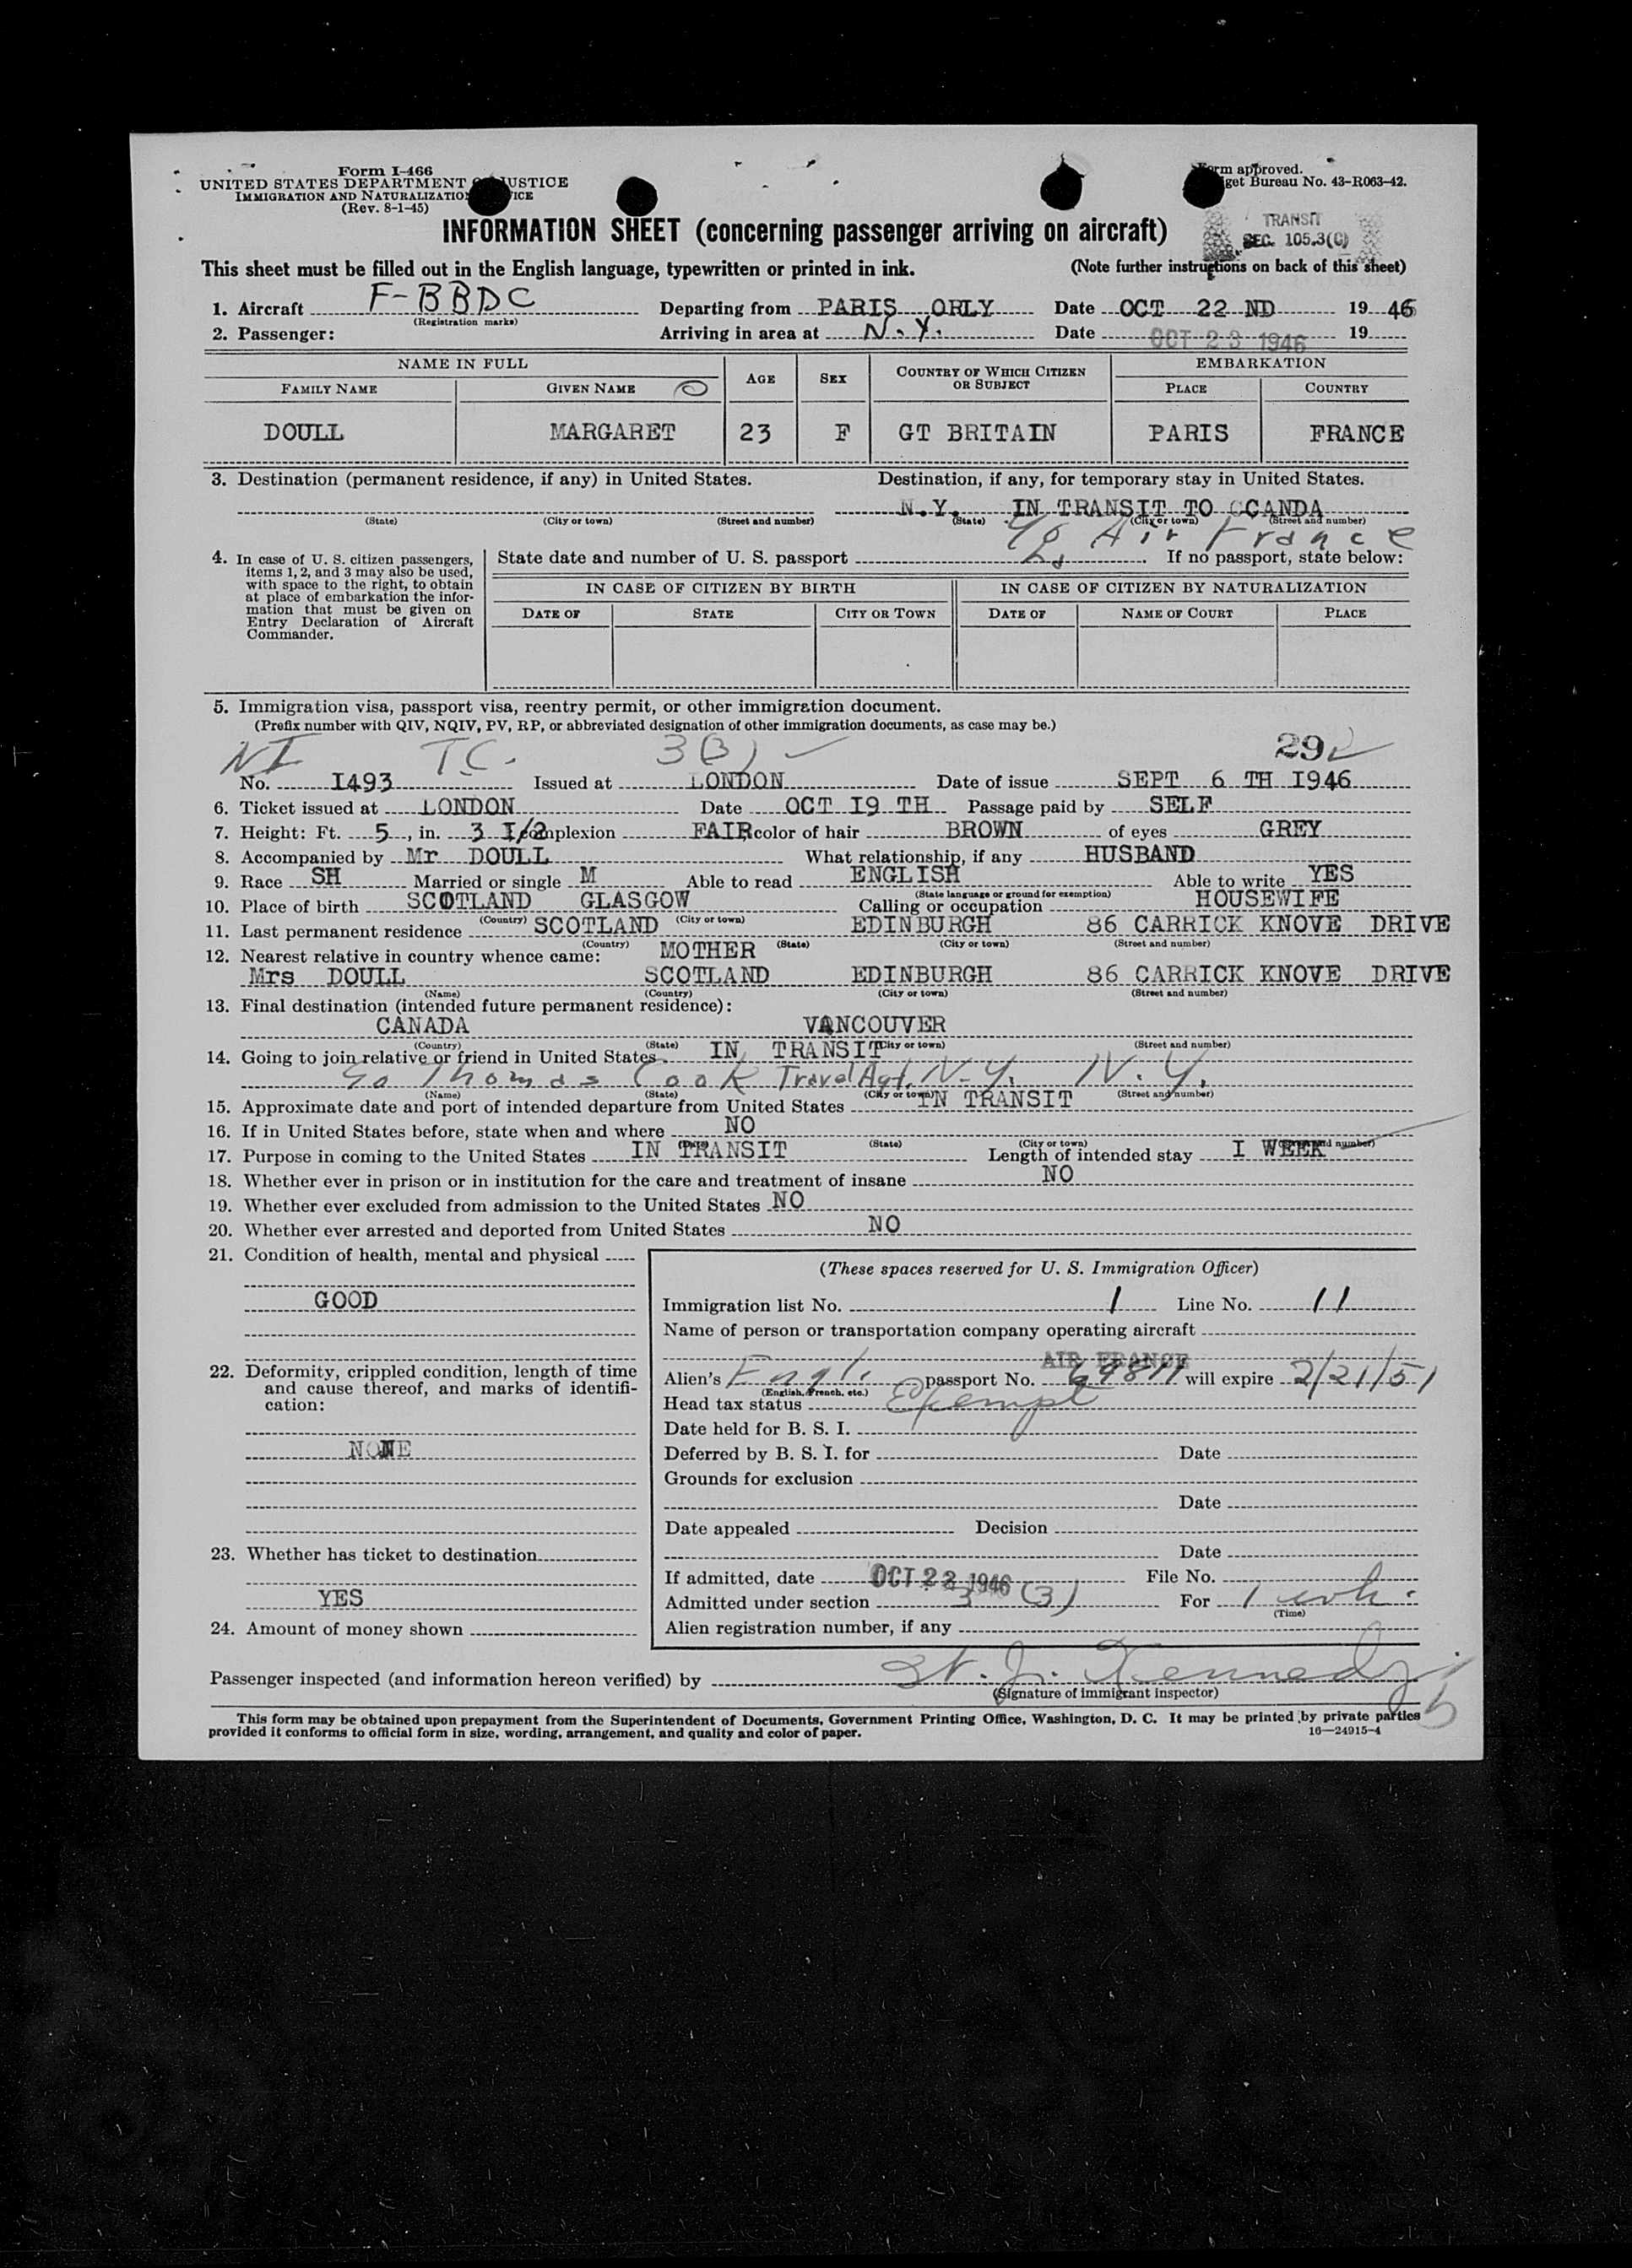 Form I-466
UNITED STATES DEPARTMENT JUSTICE
IMMIGRATION AND NATURALIZATION
(Rev. 8-1-45)
Form approved.
get Bureau No. 43-R063-42.
TRANSIT
SEC. 105.3(C)
INFORMATION SHEET (concerning passenger arriving on aircraft)
This sheet must be filled out in the English language, typewritten or printed in ink. (Note further instructions on back of this sheet)
1. Aircraft F-BBDC Departing from PARIS ORLY Date OCT 22 ND 19 46
(Registration marks)
2. Passenger: Arriving in area at N.Y. Date OCT 23 1946 19
NAME IN FULL AGE SEX COUNTRY OF WHICH CITIZEN OR SUBJECT EMBARKATION
FAMILY NAME GIVEN NAME PLACE COUNTRY
DOULL MARGARET 23 F GT BRITAIN PARIS FRANCE
3. Destination (permanent residence, if any) in United States. Destination, if any, for temporary stay in United States.
N.Y. IN TRANSIT TO CCANDA
(State) (City or town) (Street and number) (State) (City or town) (Street and number)
c/o Air France
4. In case of U. S. citizen passengers, items 1, 2, and 3 may also be used, with space to the right, to obtain at place of embarkation the information that must be given on Entry Declaration of Aircraft Commander.
State date and number of U. S. passport If no passport, state below:
IN CASE OF CITIZEN BY BIRTH IN CASE OF CITIZEN BY NATURALIZATION
DATE OF STATE CITY OR TOWN DATE OF NAME OF COURT PLACE
5. Immigration visa, passport visa, reentry permit, or other immigration document.
(Prefix number with QIV, NQIV, PV, RP, or abbreviated designation of other immigration documents, as case may be.)
NI T.C. 3(3) 292
No. I493 Issued at LONDON Date of issue SEPT 6 TH I946
6. Ticket issued at LONDON Date OCT I9 TH Passage paid by SELF
7. Height: Ft. 5, in. 3 I/2 complexion FAIR, color of hair BROWN of eyes GREY
8. Accompanied by Mr DOULL What relationship, if any HUSBAND
9. Race SH Married or single M Able to read ENGLISH Able to write YES
(State language or ground for exemption)
10. Place of birth SCOTLAND GLASGOW Calling or occupation HOUSEWIFE
(Country) (City or town)
11. Last permanent residence SCOTLAND EDINBURGH 86 CARRICK KNOVE DRIVE
(Country) (State) (City or town) (Street and number)
12. Nearest relative in country whence came: MOTHER
Mrs DOULL SCOTLAND EDINBURGH 86 CARRICK KNOVE DRIVE
(Name) (Country) (City or town) (Street and number)
13. Final destination (intended future permanent residence):
CANADA VANCOUVER
(Country) (State) (City or town) (Street and number)
14. Going to join relative or friend in United States. IN TRANSIT
c/o Thomas Cook Travel Agt. N-Y. N.Y.
(Name) (State) (City or town) (Street and number)
15. Approximate date and port of intended departure from United States IN TRANSIT
16. If in United States before, state when and where NO
(Date) (State) (City or town) (Street and number)
17. Purpose in coming to the United States IN TRANSIT Length of intended stay I WEEK
18. Whether ever in prison or in institution for the care and treatment of insane NO
19. Whether ever excluded from admission to the United States NO
20. Whether ever arrested and deported from United States NO
21. Condition of health, mental and physical
GOOD
22. Deformity, crippled condition, length of time and cause thereof, and marks of identification:
NONE
23. Whether has ticket to destination
YES
24. Amount of money shown
(These spaces reserved for U. S. Immigration Officer)
Immigration list No. 1 Line No. 11
Name of person or transportation company operating aircraft
AIR FRANCE
Alien's Engl. passport No. 69811 will expire 2/21/51
(English, French, etc.)
Head tax status Exempt
Date held for B. S. I.
Deferred by B. S. I. for Date
Grounds for exclusion
Date
Date appealed Decision
Date
If admitted, date OCT 23 1946 File No.
Admitted under section 3 (3) For 1 wk.
(Time)
Alien registration number, if any
Passenger inspected (and information hereon verified) by Kennedy
(Signature of immigrant inspector)
This form may be obtained upon prepayment from the Superintendent of Documents, Government Printing Office, Washington, D. C. It may be printed by private parties
provided it conforms to official form in size, wording, arrangement, and quality and color of paper. 16—24915-4